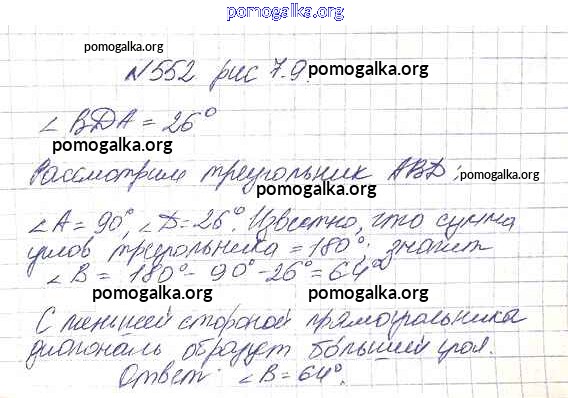 pomogalka.org
pomogalka.org
№552 рис 7.9.
pomogalka.org
∠BDA = 26°
pomogalka.org
Рассмотрим треугольник ABD,
pomogalka.org
∠A = 90°, ∠D = 26°. Известно, что сумма
углов треугольника = 180°. значит
∠B = 180° - 90° - 26° = 64°
pomogalka.org pomogalka.org
С меньшей стороной прямоугольника
диагональ образует больший угол.
pomogalka.org
Ответ: ∠B = 64°.
pomogalka.org